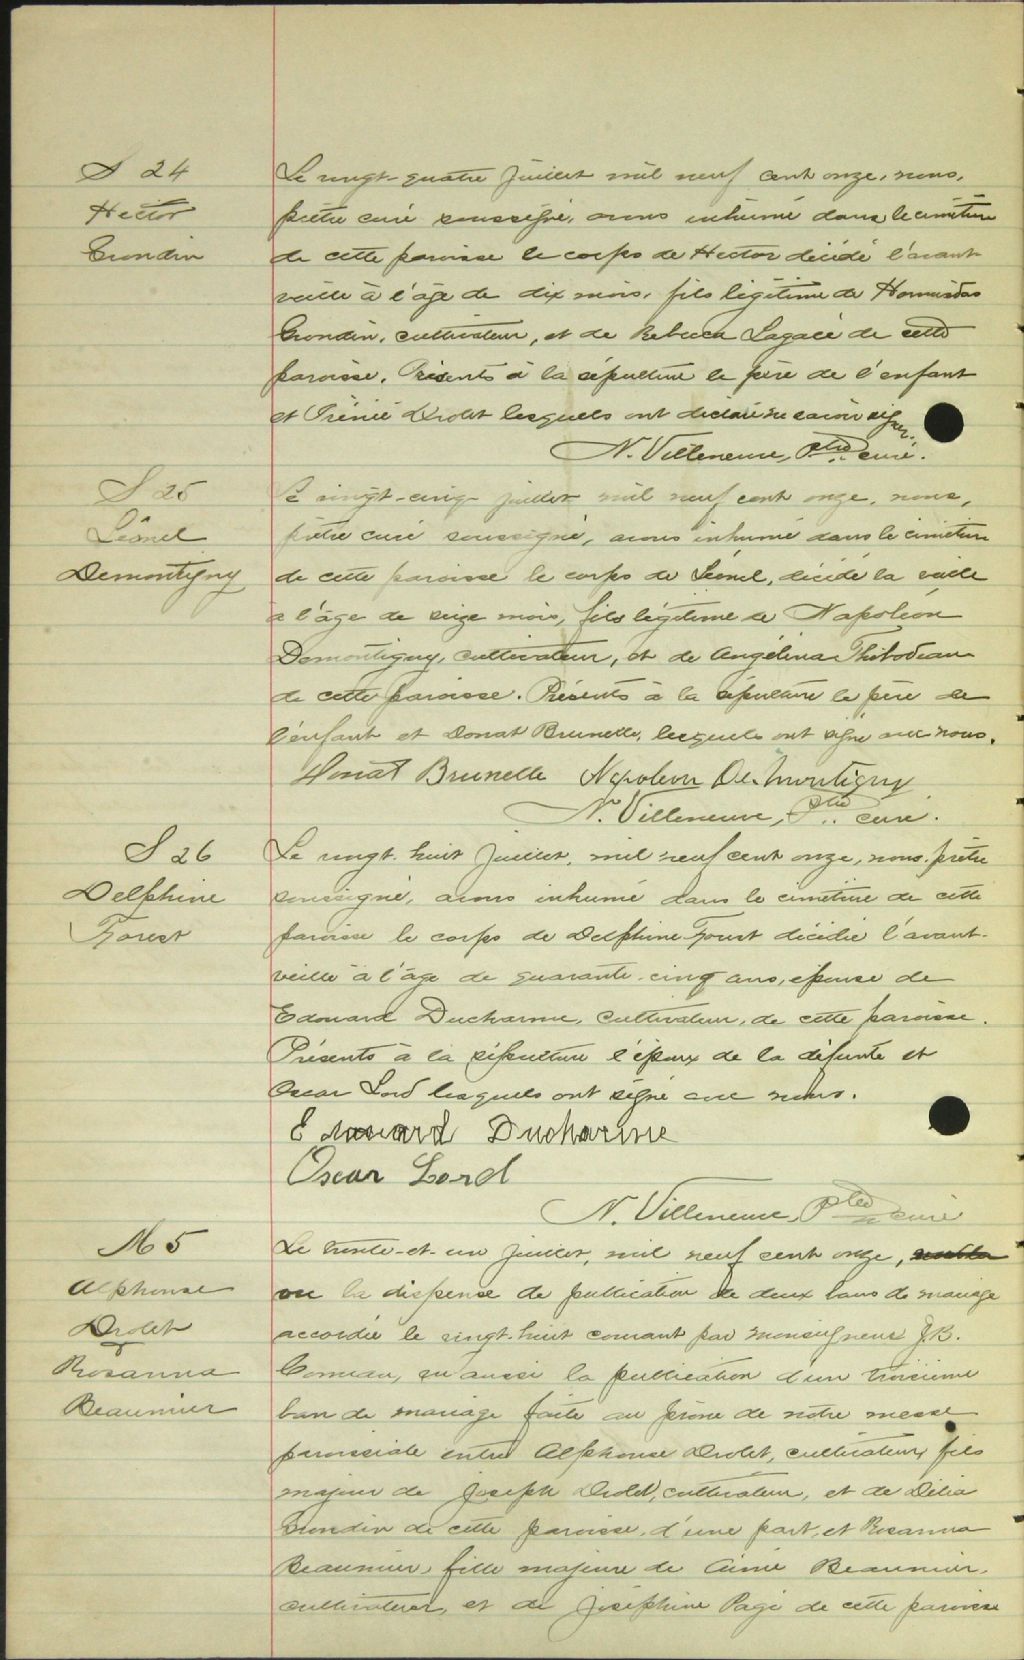 S 24
Hector
Grondin
Le vingt-quatre Juillet mil neuf cent onze, nous,
prêtre curé soussigné, avons inhumé dans le cimetière
de cette paroisse le corps de Hector décédé l'avant
veille à l'âge de dix mois, fils légitime de Hormisdas
Grondin, cultivateur, et de Rebecca Lagacé de cette
paroisse. Présents à la sépulture le père de l'enfant
et Drolet lesquels ont déclaré ne savoir signer.
N. Villeneuve, Ptre curé.
S 25
Léonel
Demontigny
Le vingt-cinq juillet mil neuf cent onze, nous,
prêtre curé soussigné, avons inhumé dans le cimetière
de cette paroisse le corps de Léonel, décédé la veille
à l'âge de seize mois, fils légitime de Napoléon
Demontigny, cultivateur, et de Angélina Thibodeau
de cette paroisse. Présents à la sépulture le père de
l'enfant et Donat Brunelle, lesquels ont signé avec nous.
Donat Brunelle Napoleon De Montigny
N. Villeneuve, Ptre curé.
S 26
Delphine
Forest
Le vingt-huit Juillet, mil neuf cent onze, nous, prêtre
soussigné, avons inhumé dans le cimetière de cette
paroisse le corps de Delphine Forest décédée l'avant-
veille à l'âge de quarante-cinq ans, épouse de
Edouard Ducharme, cultivateur, de cette paroisse.
Présents à la sépulture l'époux de la défunte et
Oscar Lord lesquels ont signé avec nous.
Edouard Ducharme
Oscar Lord
N. Villeneuve, Ptre curé
M 5
Alphonse
Drolet
Rosanna
Beaumier
Le trente-et-un Juillet, mil neuf cent onze,
vu la dispense de publication de deux bans de mariage
accordée le vingt-huit courant par Monseigneur J.B.
Comeau, vu aussi la publication d'un troisième
ban de mariage faite au prône de notre messe
paroissiale entre Alphonse Drolet, cultivateur, fils
majeur de Joseph Drolet, cultivateur, et de Délia
Grondin de cette paroisse, d'une part, et Rosanna
Beaumier, fille majeure de Aimé Beaumier,
cultivateur, et de Joséphine Pagé de cette paroisse